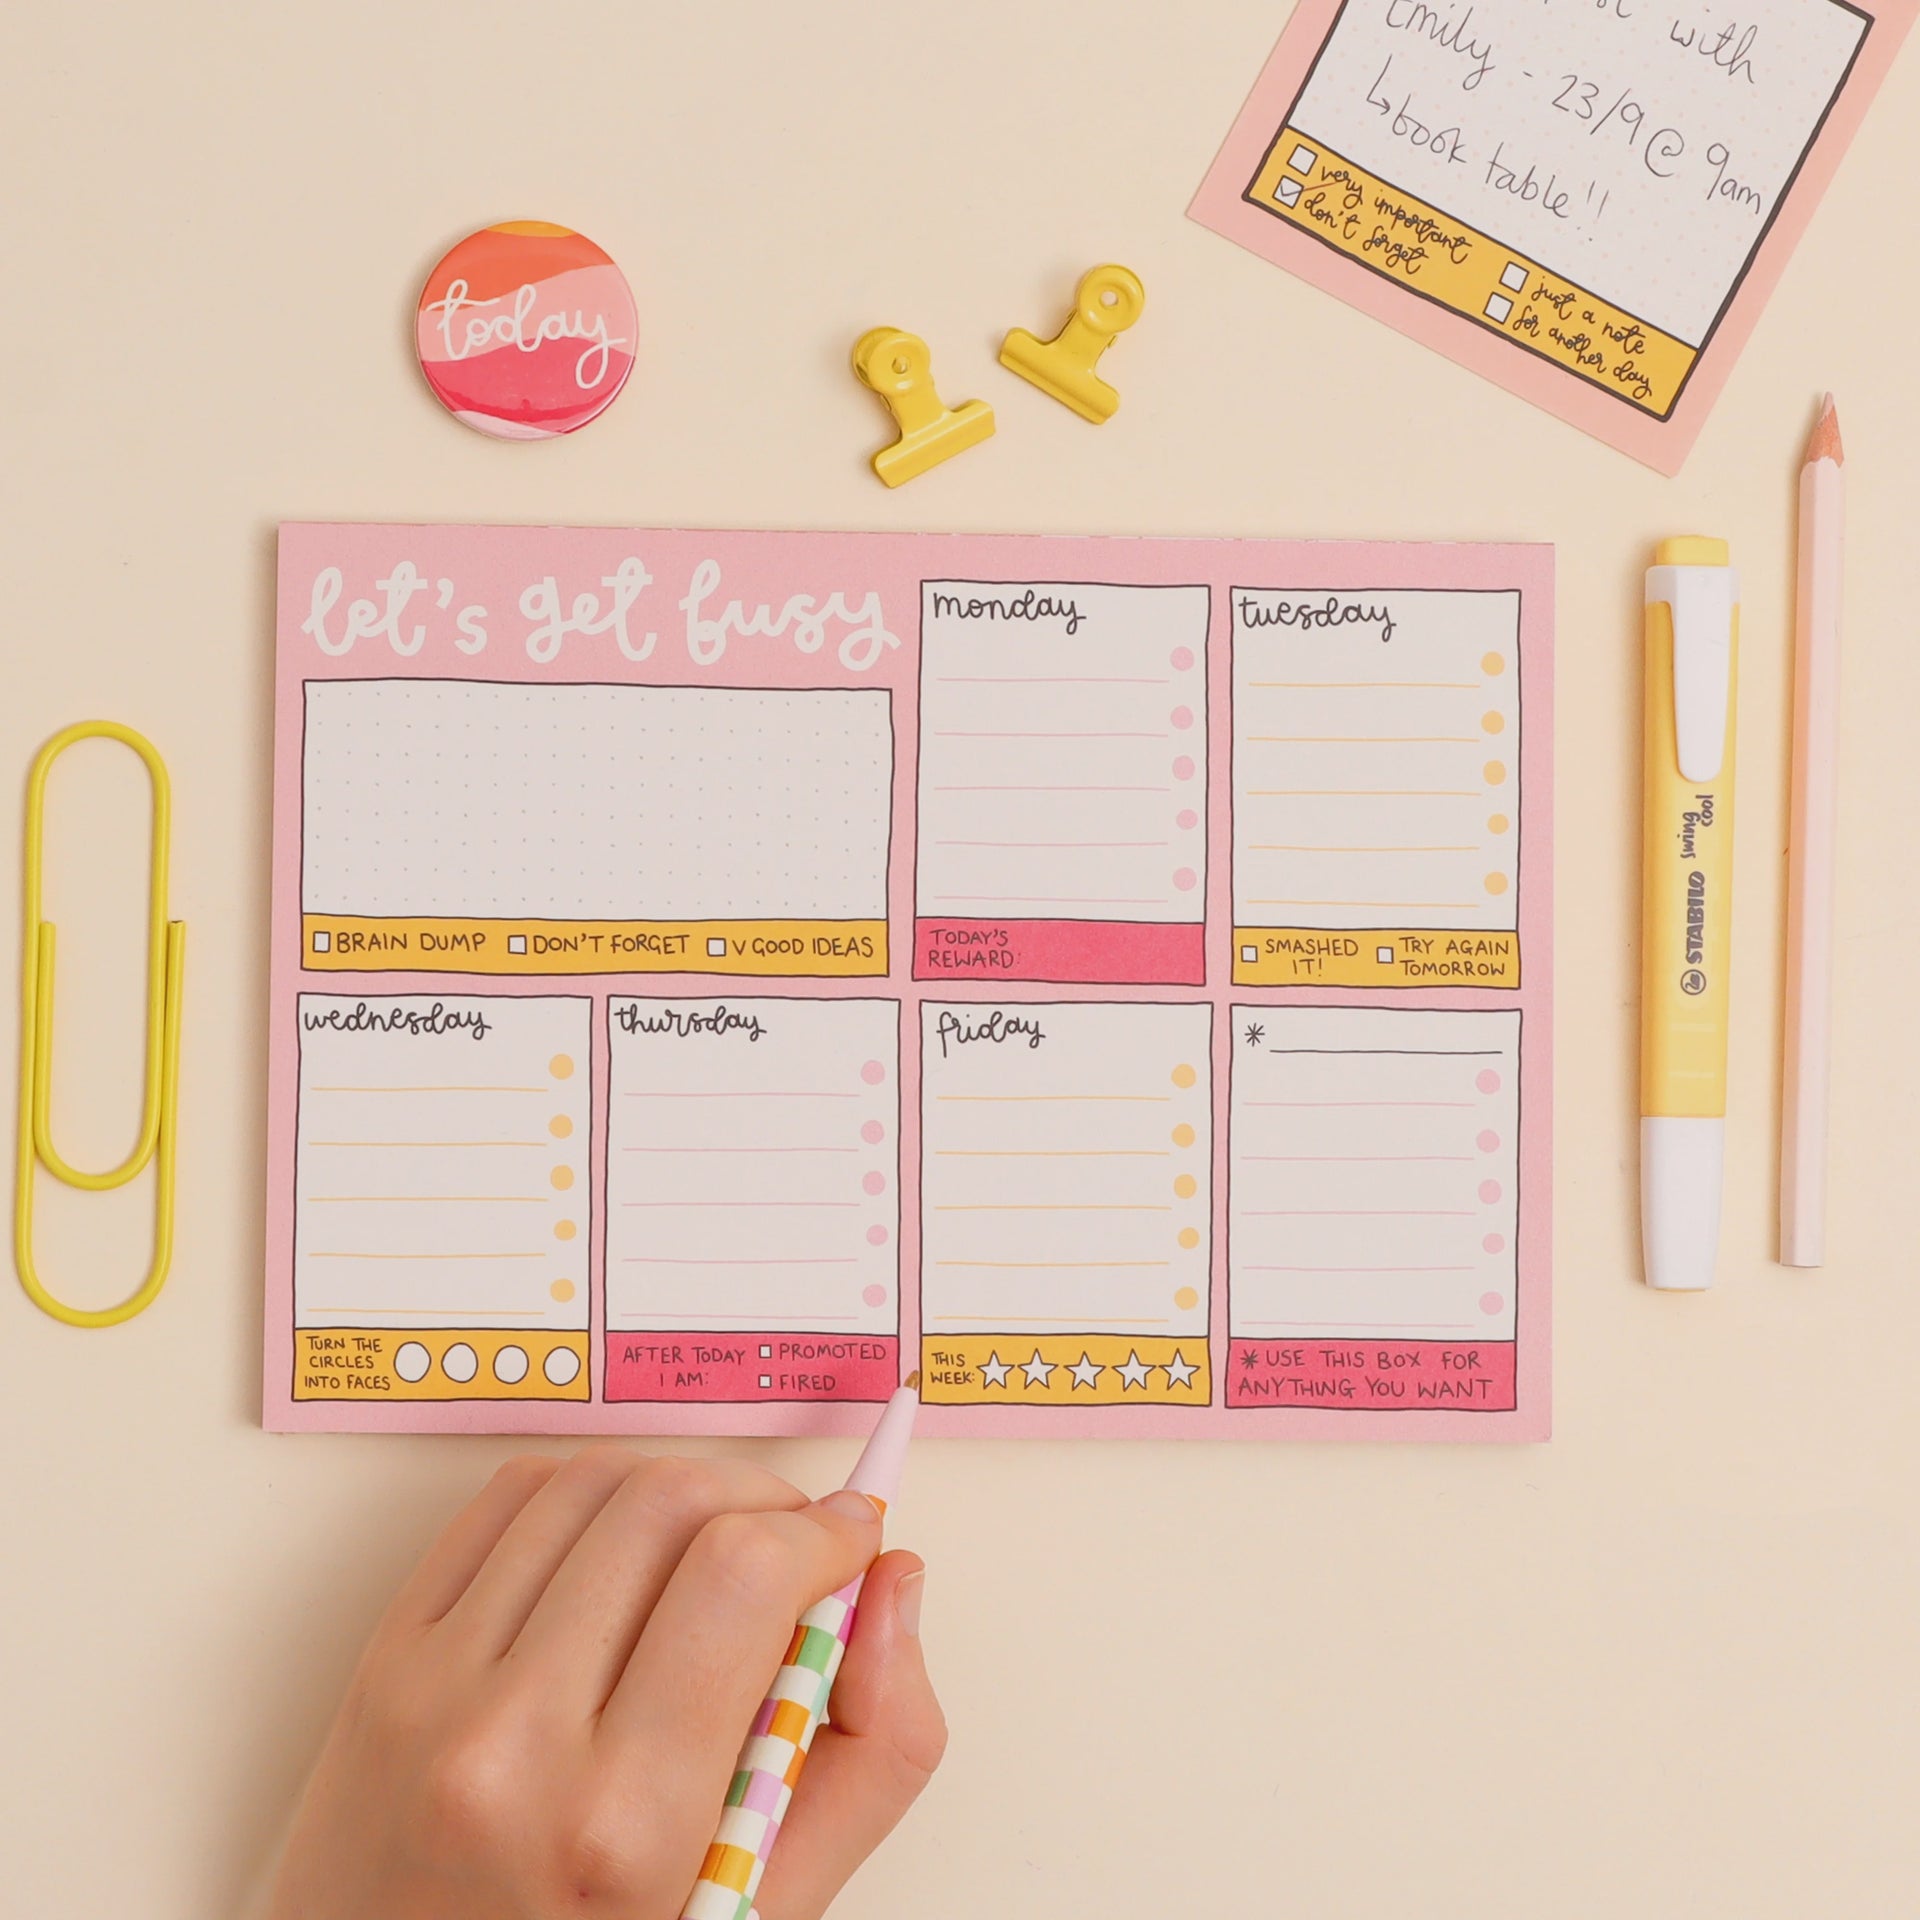 with
Emily - 23/9 @ 9am
↳book table!!
very important
don't forget
just a note
for another day
today
let's get busy
BRAIN DUMP DON'T FORGET V GOOD IDEAS
monday
TODAY'S
REWARD:
tuesday
SMASHED
IT!
TRY AGAIN
TOMORROW
wednesday
TURN THE
CIRCLES
INTO FACES
thursday
AFTER TODAY
I AM:
PROMOTED
FIRED
friday
THIS
WEEK:
*
* USE THIS BOX FOR
ANYTHING YOU WANT
STABILO swing
cool